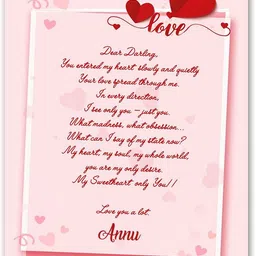 love
Dear Darling,
You entered my heart slowly and quietly
Your love spread through me.
In every direction,
I see only you – just you.
What madness, what obsession...
What can I say of my state now?
My heart, my soul, my whole world,
you are my only desire.
My Sweetheart only You!!
Love you a lot,
Annu